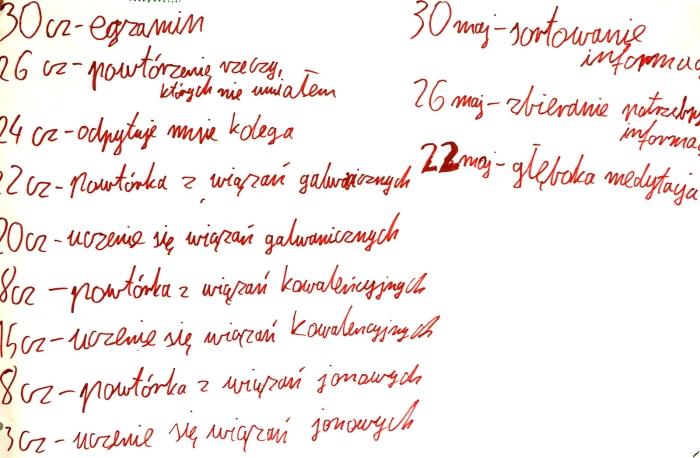 30 cz - egzamin
26 cz - powtórzenie rzeczy,
których nie umiałem
24 cz - odpytuje mnie kolega
22 cz - powtórka z wiązań galwanicznych
20 cz - uczenie się wiązań galwanicznych
8 cz - powtórka z wiązań kowalencyjnych
15 cz - uczenie się wiązań kowalencyjnych
8 cz - powtórka z wiązań jonowych
3 cz - uczenie się wiązań jonowych
30 maj - sortowanie
informac
26 maj - zbieranie potrzebny
informac
22 maj - głęboka medytacja